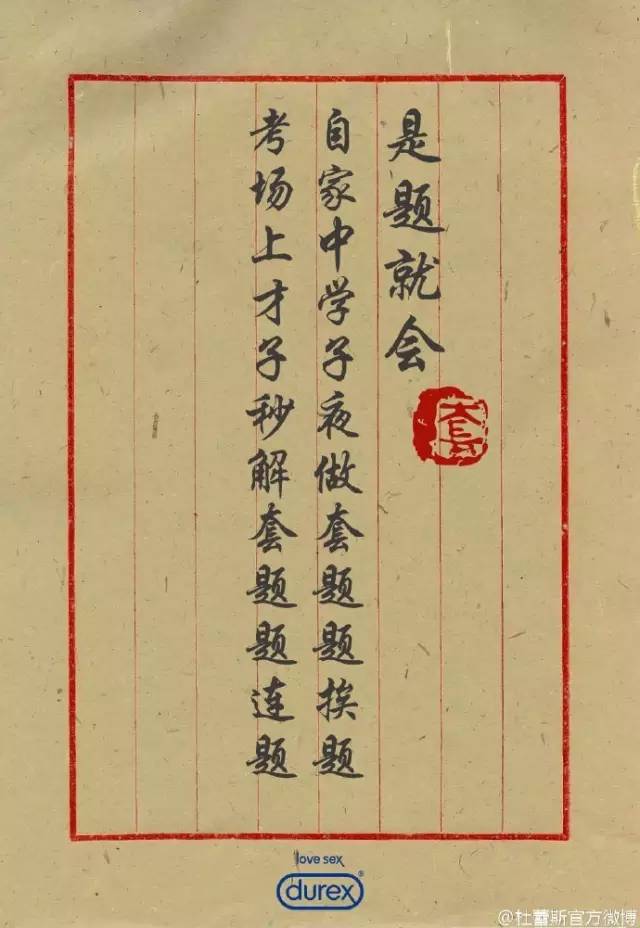 是题就会
自家中学子夜做套题题挨题
考场上才子秒解套题题连题
love sex
durex®
@杜蕾斯官方微博